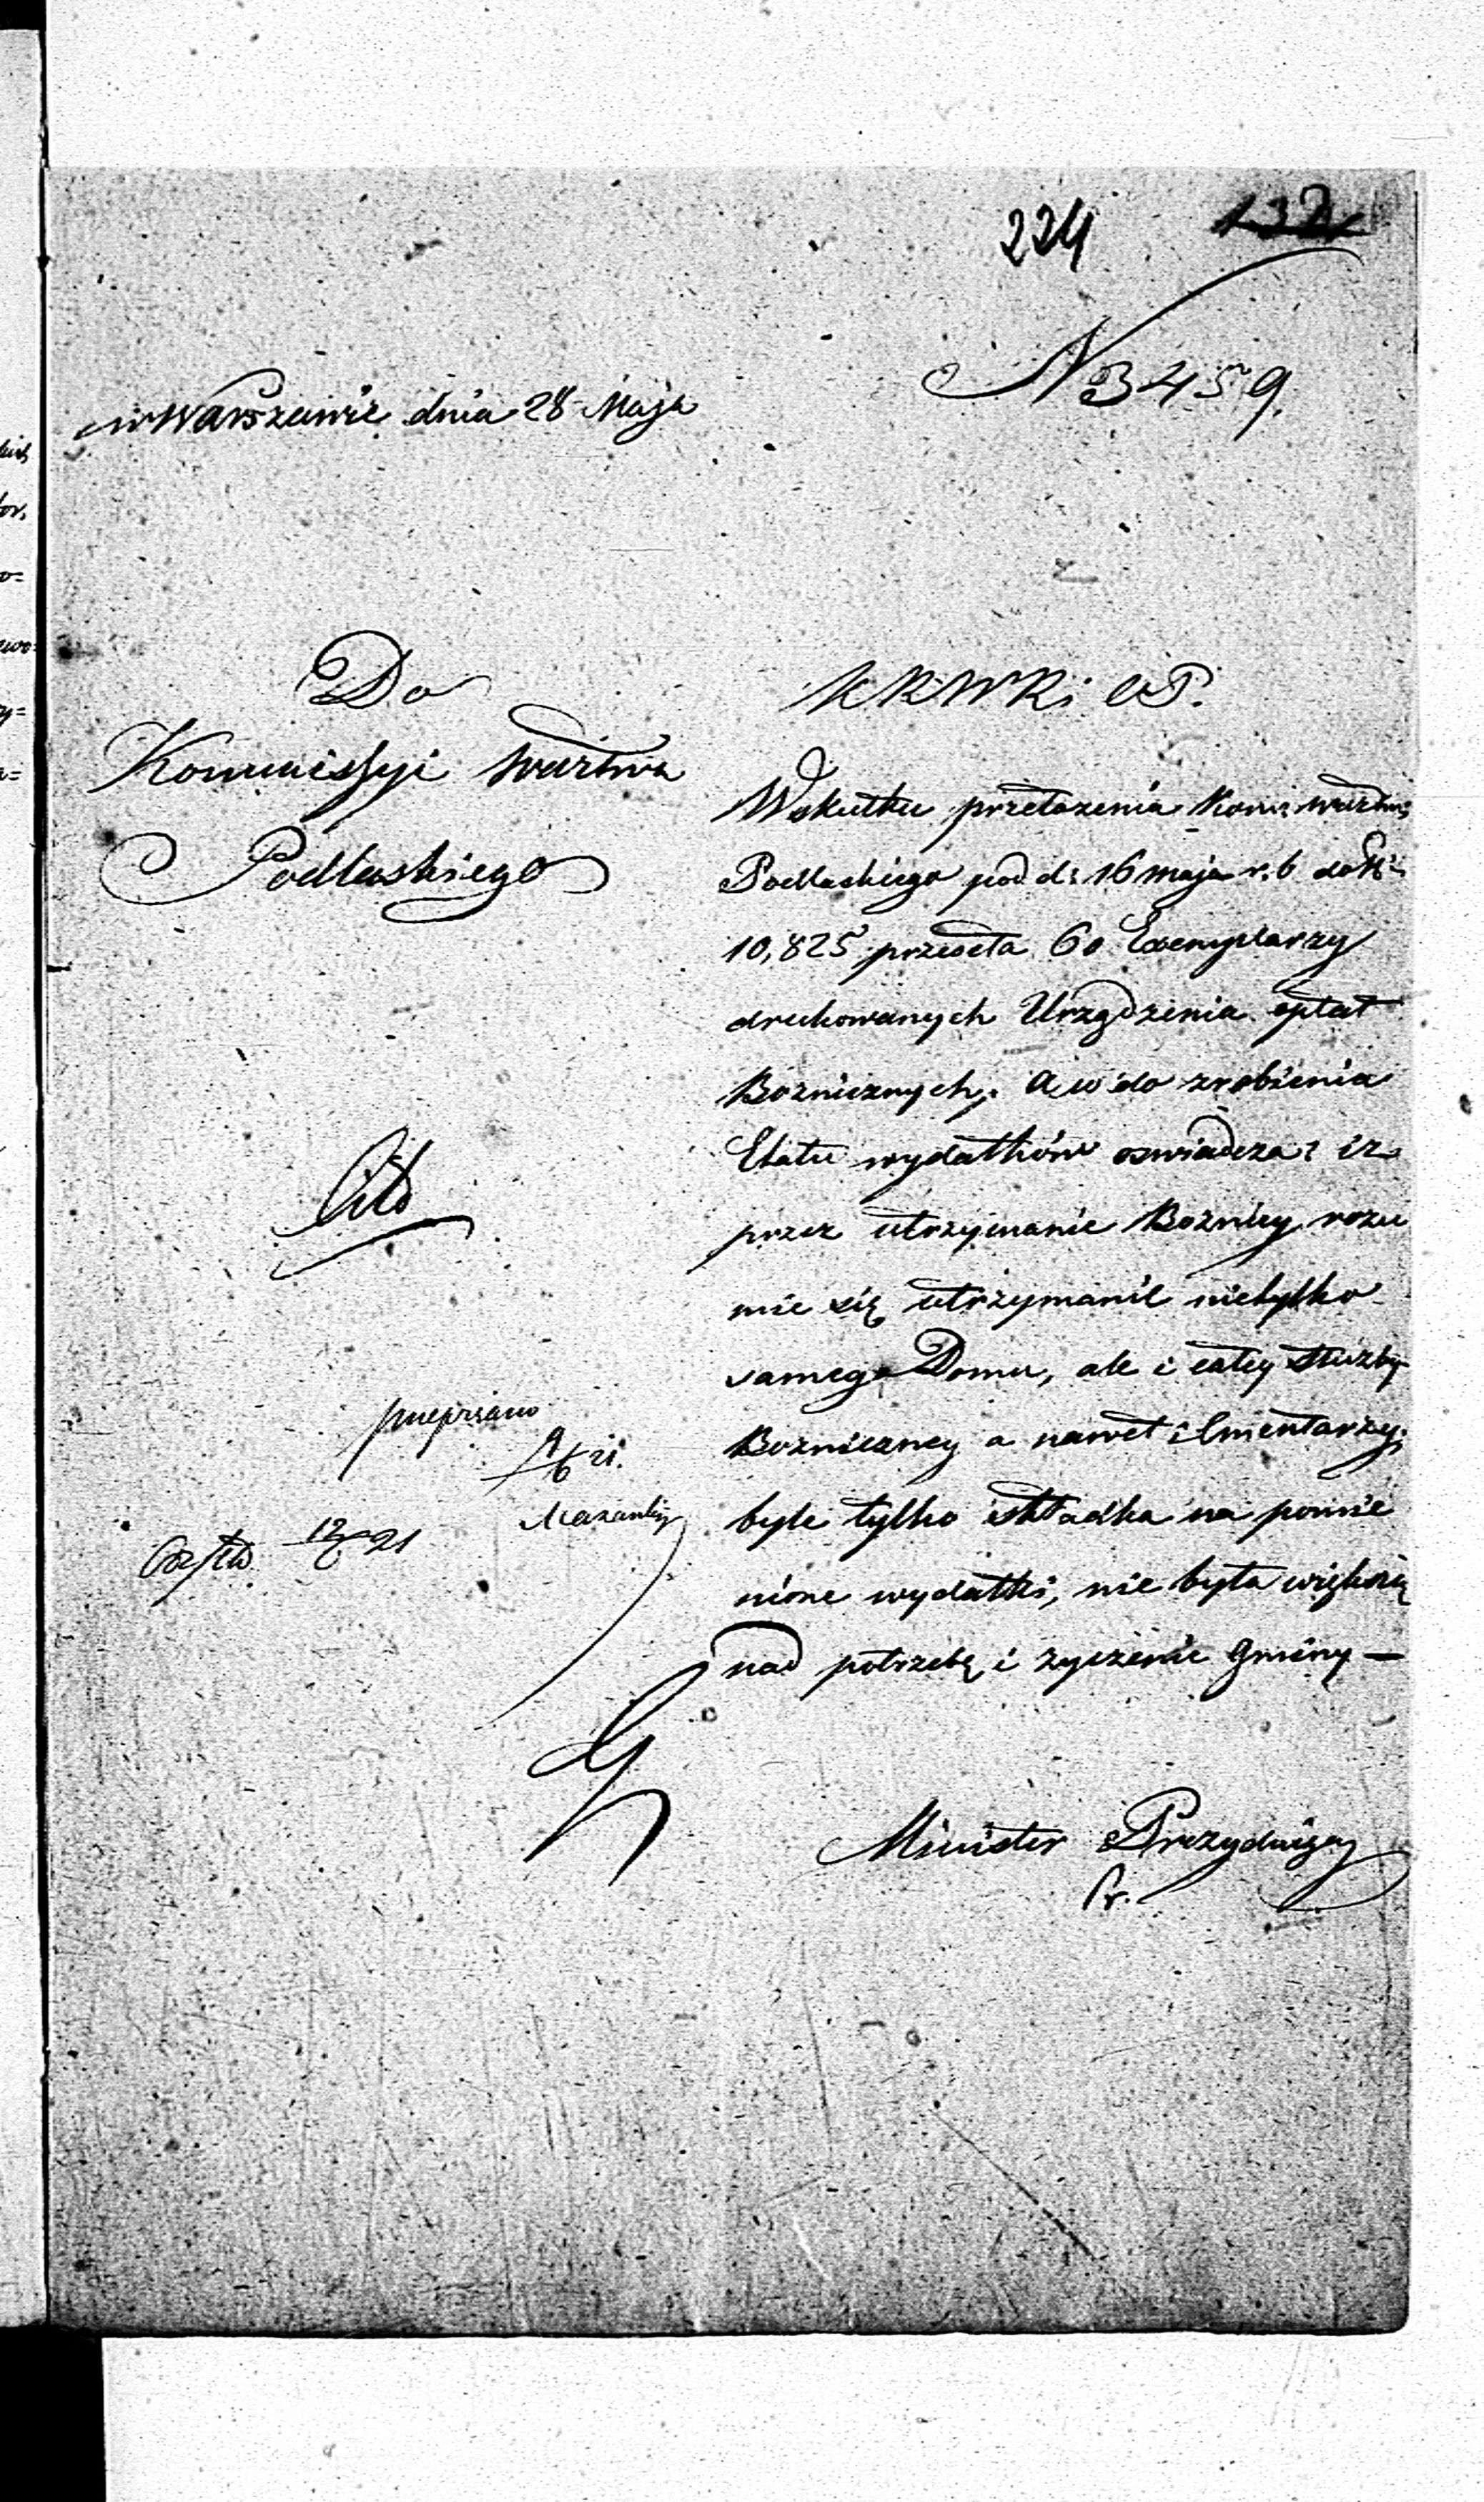 224 132
N 3459.
w Warszawie dnia 28 Maja
Do
Kommissyi Wdztwa
Podlaskiego
Cito
przepisano
9/6 21.
12/6 21
KRWRi OP.
Wskutku przełożenia Kom: Wdztwa
Podlaskiego pod d: 16 maja r. b do N:
10,825 przeseła 60 Exemplarzy
drukowanych Urządzenia opłat
Bożnicznych, a co do zrobienia
Etatu wydatków oswiadcza: iz
przez utrzymanie Bożnicy rozu
mie się utrzymanie nietylko
samego Domu, ale i całey służby
Bozniczney a nawet i Cmentarzy,
byle tylko składka na pomie
nione wydatki, nie była większą
nad potrzebę i zyczenie Gminy —
Minister Prezyduiący